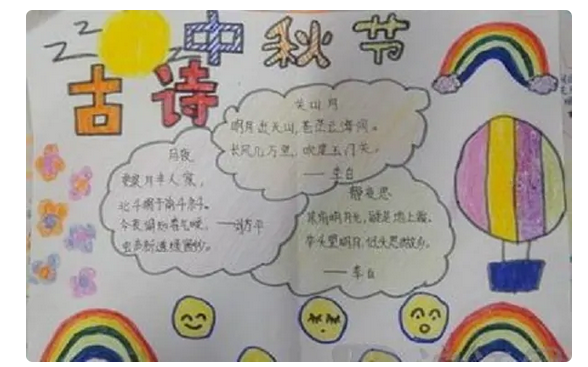 Z Z Z
中秋节
古诗
关山月
明月出天山,苍茫云海间。
长风几万里,吹度玉门关。
——李白
月半人家,
北斗阑干南斗斜。
今夜偏知春气暖,——刘方平
虫声新透绿窗纱。
静夜思
床前明月光,疑是地上霜。
举头望明月,低头思故乡。
——李白